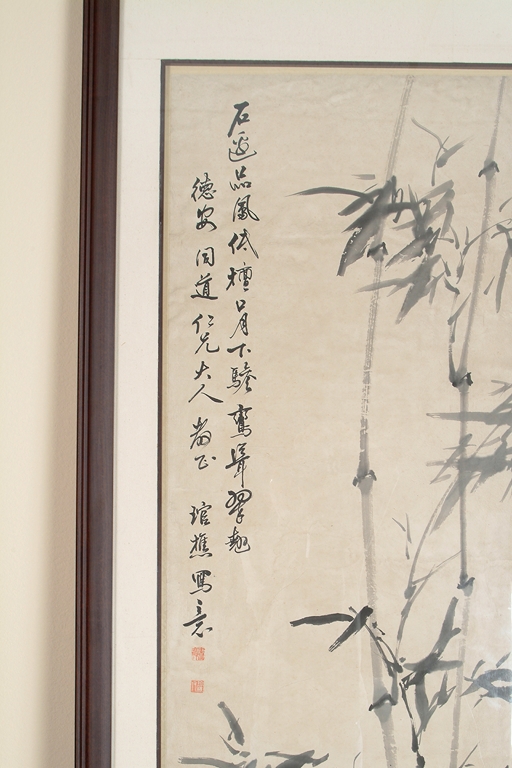 石邊品鳳低壇口月下驂鸞聳翠翹
德安同道仁兄大人 正
琯樵寫意